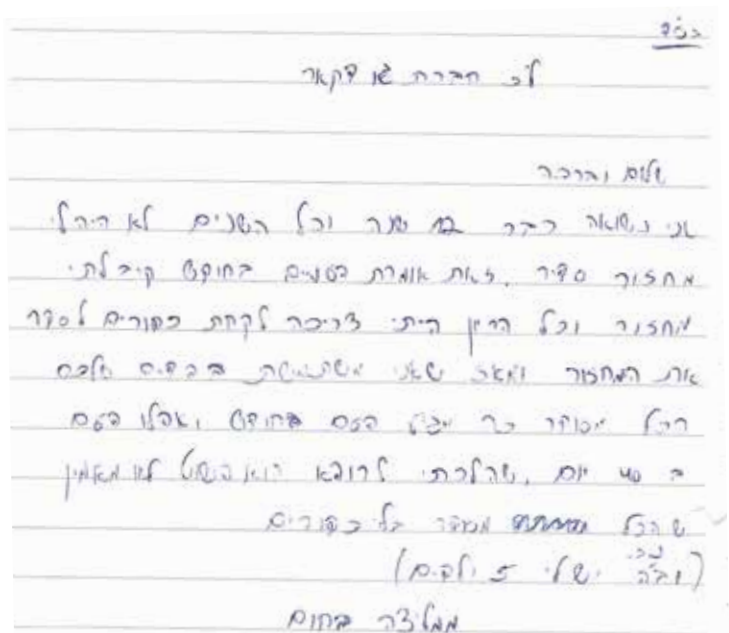 בס"ד
לכ חברת גו דקאר
שלום וברכה
אני נשואה כבר שנה וכל השנים לא היה לי
מחזור סדיר. זאת אומרת פעמיים בחודש קיבלתי
מחזור וכל הריון הייתי צריכה לקחת כדורים לסדר
את המחזור ומאז שאני משתמשת בבדים שלכם
הכל מסודר כך מגיע פעם בחודש ואפילו פעם
ב 40 יום. שהלכתי לרופא הוא פשוט לא מאמין
שהכל מסודר בלי כדורים
(וב"ה יש לי 5 ילדים)
ממליצה בחום